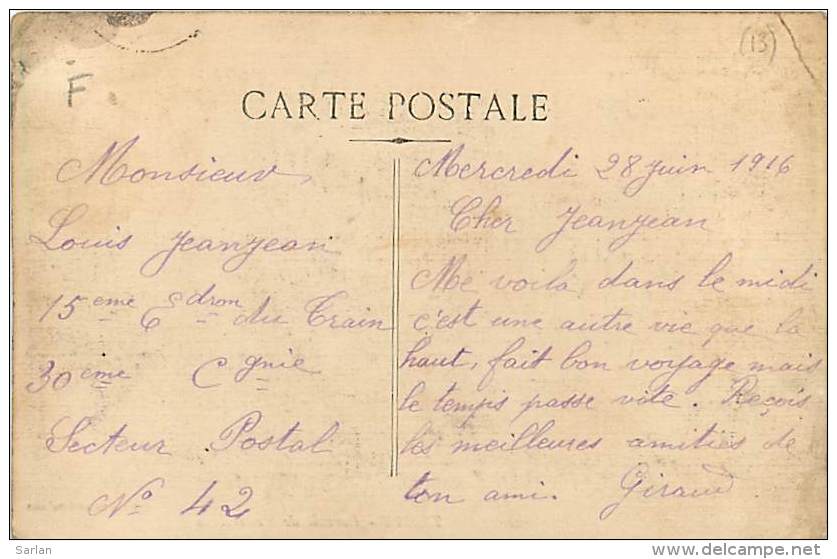 (13)
F
CARTE POSTALE
Monsieur
Louis Jeanjean
15eme Edron du Train
30eme Cgnie
Secteur Postal
No 42
Mercredi 28 juin 1916
Cher Jeanjean
Me voilà dans le midi
c'est une autre vie que la
haut, fait bon voyage mais
le temps passe vite. Reçois
les meilleures amitiés de
ton ami. Giraud.
Sarlan
delcampe.net